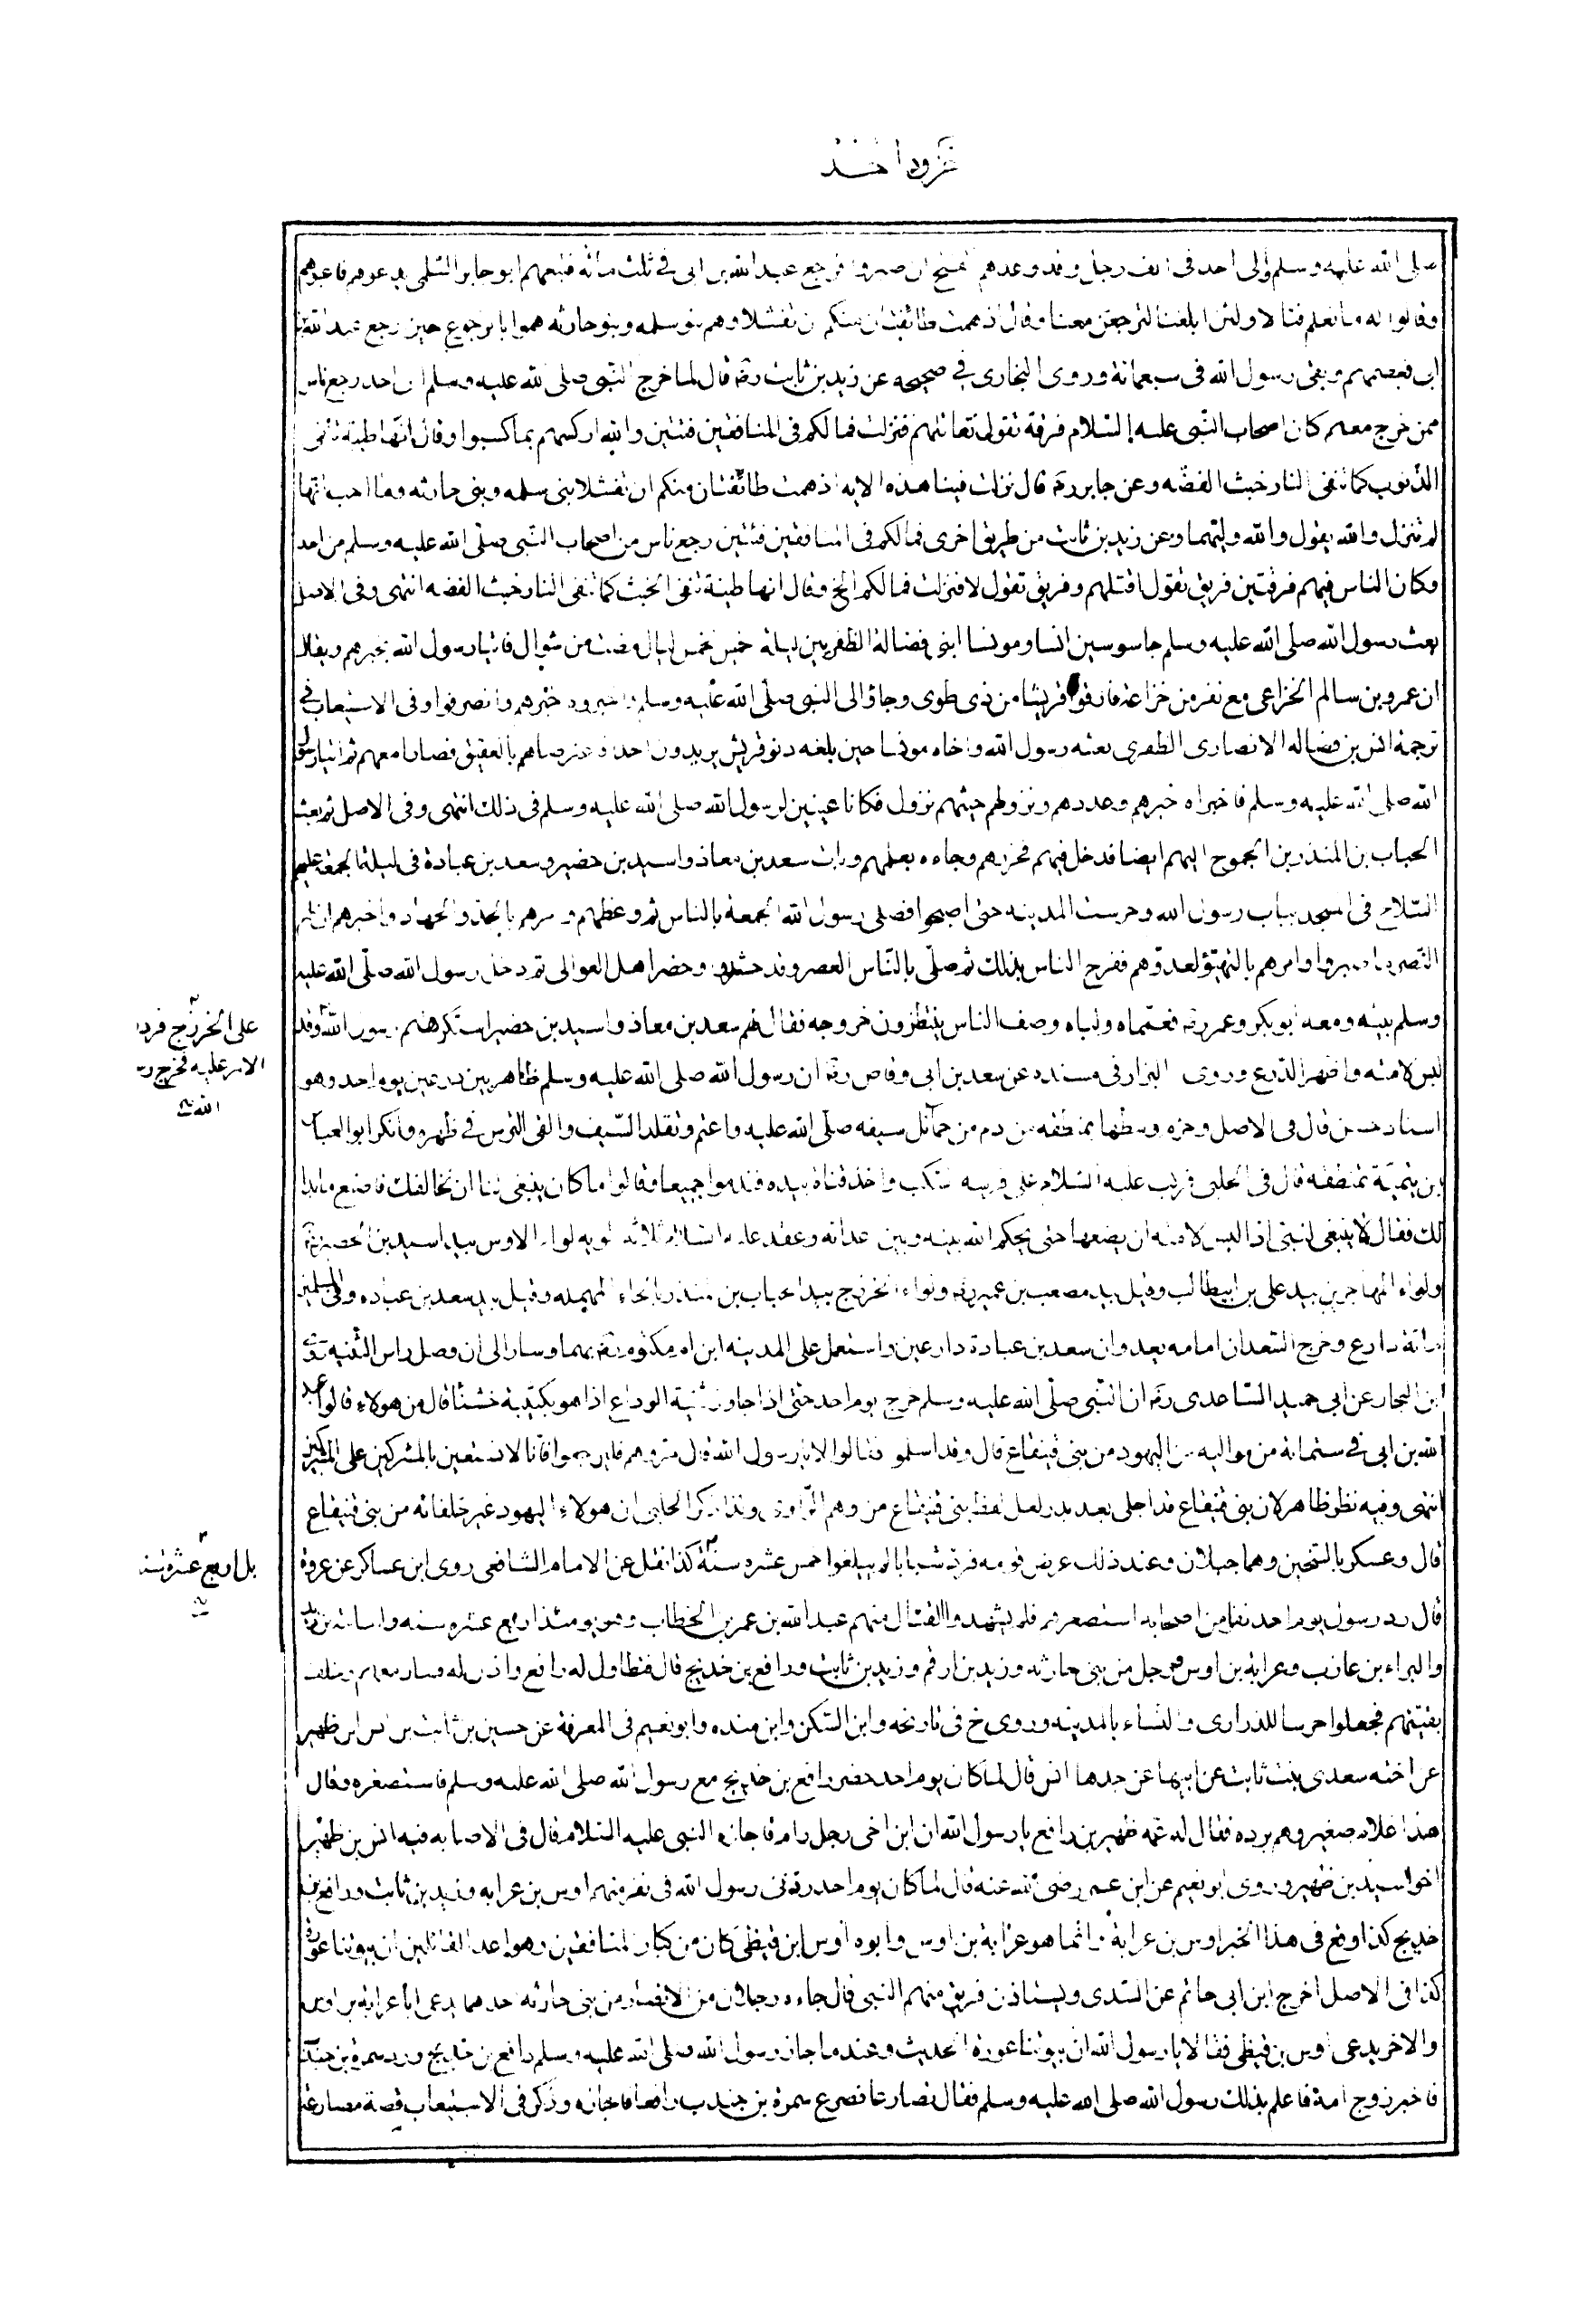 غزوة احد
صلى الله عليه وسلم الى احد فى الف رجل وقد وعدهم الفتح ان صبروا فرجع عبد الله بن ابى فى ثلث مائة فتبعهم ابو جابر السلمى يدعوهم فاعيوهم
وقالوا له ما نعلم قتالا ولئن اطعتنا لترجعن معنا وقال اذ همت طائفتان منكم ان تفشلا وهم بنو سلمه وبنو حارثه هموا بالرجوع حين رجع عبد الله بن
ابى فعصمهم وبقى رسول الله فى سبعمائة وروى البخارى فى صحيحه عن زيد بن ثابت رضه قال لما خرج النبى صلى الله عليه وسلم الى احد رجع ناس
ممن خرج معه كان اصحاب النبى عليه السلام فرقة تقول نقاتلهم فنزلت فما لكم فى المنافقين فئتين والله اركسهم بما كسبوا وقال انها طيبة تنفى
الذنوب كما تنفى النار خبث الفضه وعن جابر رضه قال نزلت فينا هذه الايه اذ همت طائفتان منكم ان تفشلا بنى سلمه وبنى حارثه وما احب انها
لم تنزل والله يقول والله وليهما وعن زيد بن ثابت من طريق اخرى فما لكم فى المنافقين فئتين رجع ناس من اصحاب النبى صلى الله عليه وسلم من احد
وكان الناس فيهم فرقتين فريق تقول اقتلهم وفريق تقول لا فنزلت فما لكم الخ وقال انها طيبة تنفى الخبث كما تنفى النار خبث الفضه انتهى وفى الاصل
بعث رسول الله صلى الله عليه وسلم جاسوسين انسا ومونسا ابنى فضالة الظفريين ليلة خميس لخمس ليال مضت من شوال فاتيا رسول الله بخبرهم ويقال
ان عمرو بن سالم الخزاعى مع نفر من خزاعة فارقوا قريشا من ذى طوى وجاؤ الى النبى صلى الله عليه وسلم واخبروه خبرهم وانصرفوا وفى الاستيعاب فى
ترجمة انس بن فضاله الانصارى الظفرى بعثه رسول الله واخاه مونسا حين بلغه دنو قريش يريدون احدا فاعترضاهم بالعقيق فصارا معهم ثم اتيا رسول
الله صلى الله عليه وسلم فاخبراه خبرهم وعددهم ونزولهم حيثهم نزول فكانا عينين لرسول الله صلى الله عليه وسلم فى ذلك انتهى وفى الاصل ثم بعث
الحباب بن المنذر بن الجموح اليهم ايضا فدخل فيهم فحزرهم وجاءه بعلمهم وبات سعد بن معاذ واسيد بن حضير وسعد بن عبادة فى ليلة الجمعة عليهم
السلاح فى المسجد بباب رسول الله وحرست المدينه حتى اصبحوا فصلى رسول الله الجمعة بالناس ثم وعظهم وامرهم بالجد والجهاد واخبرهم ان لهم
النصر ما صبروا وامرهم بالتهيؤ لعدوهم ففرح الناس بذلك ثم صلى بالناس العصر وقد حشدوا وحضر اهل العوالى ثم دخل رسول الله صلى الله عليه
وسلم بيته ومعه ابو بكر وعمر رضه فعمماه ولباه وصف الناس ينتظرون خروجه فقال لهم سعد بن معاذ واسيد بن حضير استكرهتم رسول الله وقد
على الخزرج فردوا
الامر عليه فخرج رسول
الله
لبس لامته واظهر الدرع وروى البزار فى مسنده عن سعد بن ابى وقاص رضه ان رسول الله صلى الله عليه وسلم ظاهر بين درعين يوم احد وهو
اسناد حسن قال فى الاصل وحزم وسطها بمنطقه من دم من حمائل سيفه صلى الله عليه واعتم وتقلد السيف والقى الترس فى ظهره وانكر ابو العباس
بن تيمية تمنطقه قال فى الحلبى فركب عليه السلام على فرسه سكب واخذ قناة بيده فندموا جميعا وقالوا ما كان ينبغى لنا ان نخالفك فاصنع ما بدا
لك فقال لا ينبغى لنبى اذا لبس لامته ان يضعها حتى يحكم الله بينه وبين عدائه وعقد عليه السلام ثلاثة الويه لواء الاوس بيد اسيد بن الحضير رضه
ولواء المهاجرين بيد على بن ابيطالب وقيل بيد مصعب بن عمير رضه ولواء الخزرج بيد الحباب بن المنذر بالحاء المهمله وقيل بيد سعد بن عباده وفى المسلمين
مائة دارع وخرج السعدان امامه يعدوان سعد بن عبادة دارعين واستعمل على المدينه ابن ام مكتوم رضه بهما وسار الى ان وصل راس الثنيه روى
ابن النجار عن ابى حميد الساعدى رضه ان النبى صلى الله عليه وسلم خرج يوم احد حتى اذا جاوز ثنية الوداع اذا هو بكتيبة خشنا قال من هولاء قالوا عبد
الله بن ابى فى ستمائة من مواليه من اليهود من بنى قينقاع قال وقد اسلموا فقالوا لا يا رسول الله قال مروهم فليرجعوا فانا لا نستعين بالمشركين على المشركين
انتهى وفيه نظر ظاهر لان بنى قينقاع قد اجلى بعد بدر لعل لفظ بنى قينقاع من وهم الراوى ولذا ذكر الحلبى ان هولاء اليهود غير حلفائه من بنى قينقاع
قال وعسكر بالشيخين وهما جبلان وعند ذلك عرض قومه فرد شبابا لم يبلغوا خمس عشره سنة كذا نقل عن الامام الشافعى روى ابن عساكر عن عروة
بل اربع عشرة سنة
قال رد رسول يوم احد نفرا من اصحابه استصغرهم فلم يشهدوا القتال منهم عبد الله بن عمر بن الخطاب وهو يومئذ اربع عشره سنه واسامة بن زيد
والبراء بن عازب وعرابة بن اوس ورجل من بنى حارثه وزيد بن ارقم وزيد بن ثابت ورافع بن خديج قال فتطاول له رافع واذن له وسار معهم وخلف
بقيتهم فجعلوا حرسا للذرارى والنساء بالمدينه وروى خ فى تاريخه وابن السكن وابن منده وابو نعيم فى المعرفة عن حسين بن ثابت بن انس ابن ظهير
عن اخته سعدى بنت ثابت عن ابيها عن جدها انس قال لما كان يوم احد حضر رافع بن خديج مع رسول الله صلى الله عليه وسلم فاستصغره وقال
هذا غلام صغير وهم برده فقال له عمه ظهير بن رافع يا رسول الله ان ابن اخى رجل رام فاجازه النبى عليه السلام قال فى الاصابه فيه انس بن ظهير
اخو اسيد بن ظهير وروى ابو نعيم عن ابن عمر رضى الله عنه قال لما كان يوم احد ردنى رسول الله فى نفر منهم اوس بن عرابه وزيد بن ثابت ورافع بن
خديج كذا وقع فى هذا الخبر اوس بن عرابة وانما هو عرابة بن اوس وابوه اوس ابن قيظى كان من كبار المنافقين وهو احد القائلين ان بيوتنا عورة
كذا فى الاصل اخرج ابن ابى حاتم عن السدى ويستاذن فريق منهم النبى قال جاءه رجلان من الانصار من بنى حارثه احدهما يدعى ابا عرابة بن اوس
والاخر يدعى اوس بن قيظى فقالا يا رسول الله ان بيوتنا عورة الحديث وعند ما جاز رسول الله صلى الله عليه وسلم رافع بن خديج ورد سمرة بن جندب
فاخبر زوج امه فاعلم بذلك رسول الله صلى الله عليه وسلم فقال تصارعا فصرع سمرة بن جندب رافعا فاجازه وذكر فى الاستيعاب قصة مصارعة